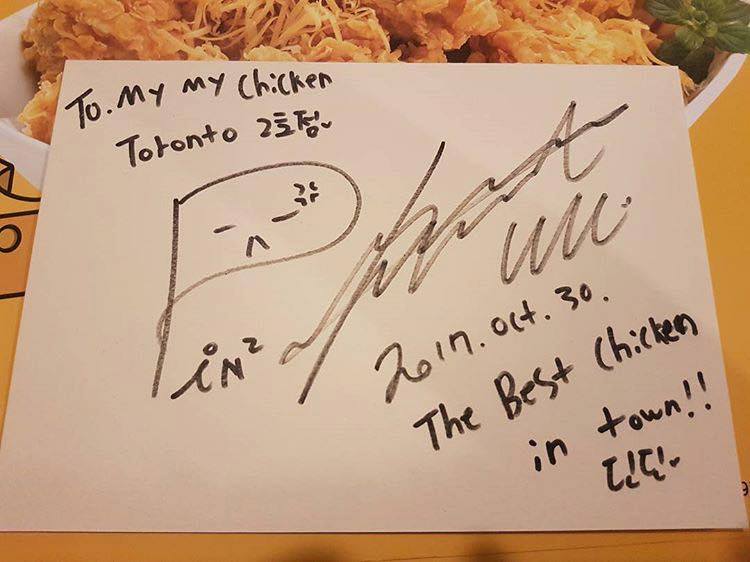 To. My My Chicken
Toronto 2호점
iN²
2017. Oct. 30.
The Best Chicken
in town!!
딘딘